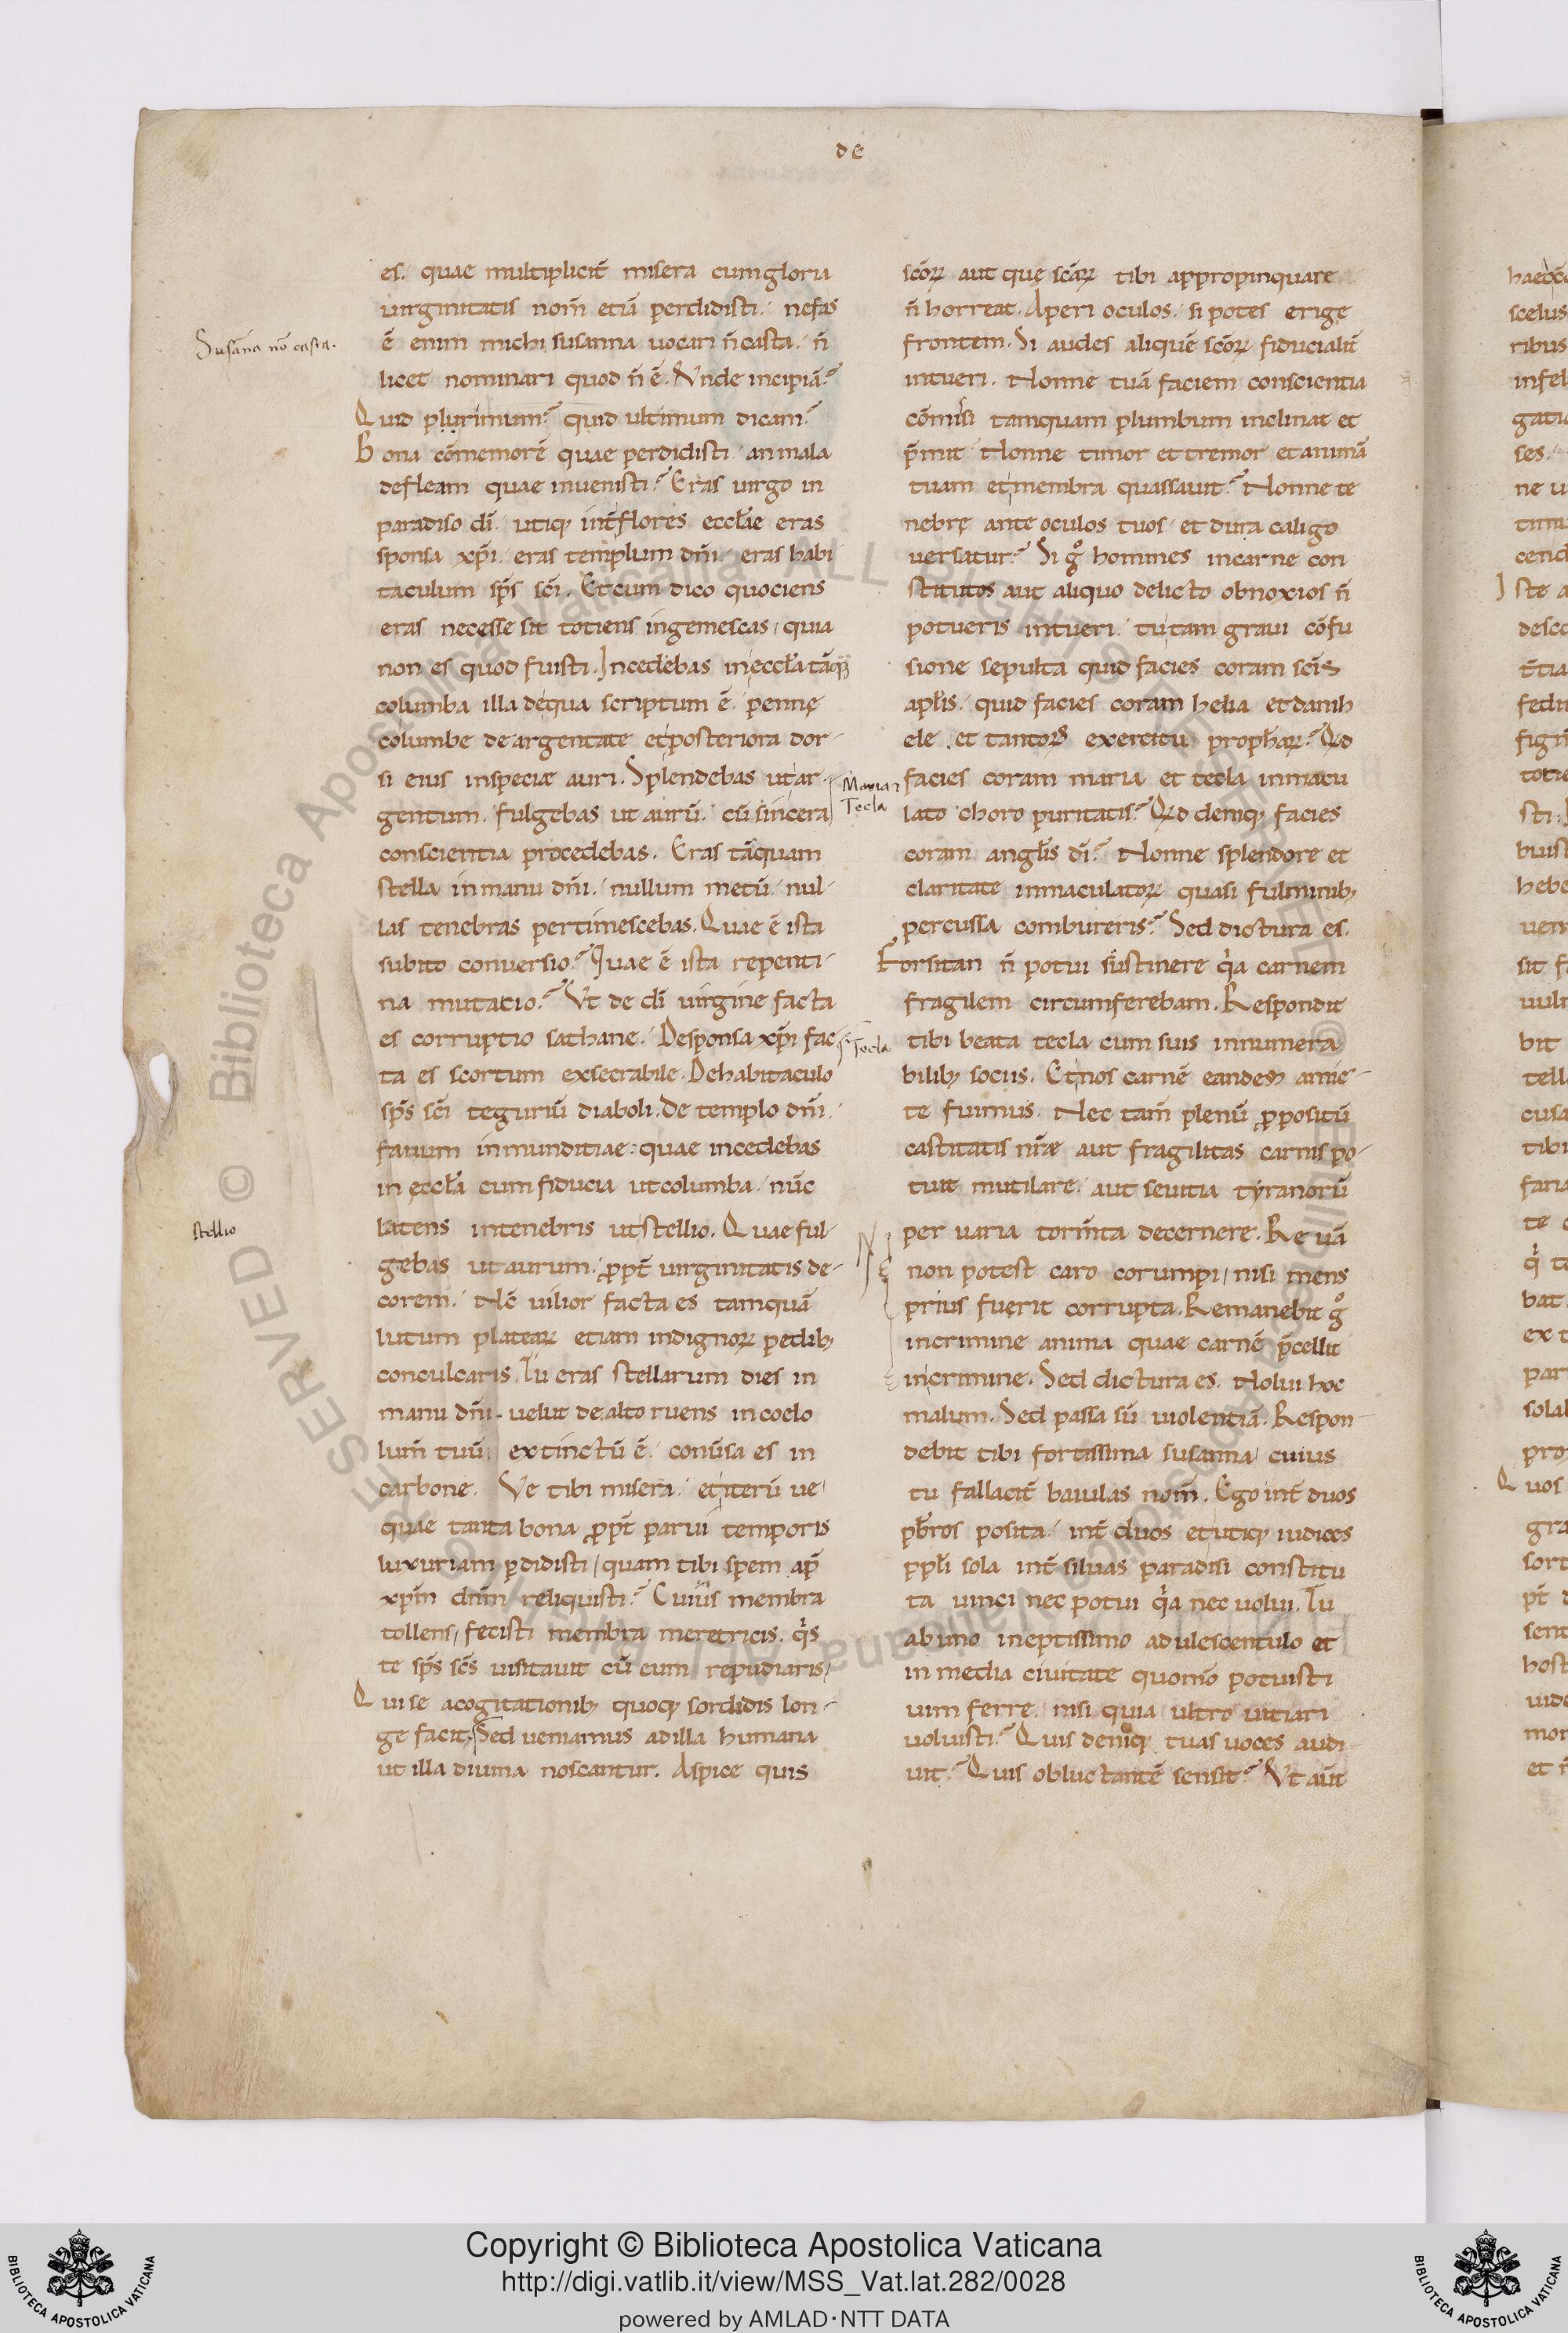 de
es. quae multiplicit̄ misera cum gloria
uirginitatis nom̄ etiā perdidisti. nefas
Susāna nō casta.
ē enim michi susanna uocari n̄ casta. n̄
licet nominari quod n̄ ē. Vnde incipiā?
Quid plurimum? quid ultimum dicam?
Bona cōmemorē quae perdidisti. an mala
defleam quae inuenisti? Eras uirgo in
paradiso dī. utiq; int̄ flores eccłae eras
sponsa xp̄i. eras templum dn̄i. eras habi
taculum sp̄s sc̄i. Et cum dico quociens
eras necesse sit totiens ingemescas, quia
non es quod fuisti. Incedebas in eccła tāq̄
columba illa de qua scriptum ē. pennę
columbe deargentate et posteriora dor-
si eius in specie auri. Splendebas ut ar-
gentum. fulgebas ut aurū. cū sincera
conscientia procedebas. Eras tāquam
stella in manu dn̄i. nullum metū. nul-
las tenebras pertimescebas. Quae ē ista
subito conuersio? Quae ē ista repenti-
na mutatio? Vt de dī uirgine facta
es corruptio sathane. De sponsa xp̄i fac
ta es scortum exsecrabile. De habitaculo
sp̄s sc̄i teguriū diaboli. De templo dn̄i.
fanum inmunditiae: quae incedebas
in ęccła cum fiducia ut columba. nūc
stellio
latens in tenebris ut stellio. Quae ful-
gebas ut aurum. ꝓpt̄ uirginitatis de-
corem. Nc̄ uilior facta es tamquā
lutum platearꝝ etiam indignorꝝ pedib;
conculcaris. Tu eras stellarum dies in
manu dn̄i. uelut de alto ruens in coelo
lum̄ tuū extinctū ē. conūsa es in
carbone. Ve tibi misera. et iterū ue
quae tanta bona ꝓpt̄ parui temporis
luxuriam ꝑdidisti, quam tibi spem ap̄
xpm̄ dnm̄ reliquisti? Cuius membra
tollens, fecisti membra meretricis. q̇s
te sp̄s sc̄s uisitauit cū eum repudiaris,
Qui se a cogitationib; quoq; sordidis lon-
ge facit. Sed ueniamus ad illa humana
ut illa diuina noscantur. Aspice quis
sc̄orꝝ aut quę sc̄arꝝ tibi appropinquare
n̄ horreat. Aperi oculos. si potes erige
frontem. Si audes aliquē sc̄orꝝ fiducialit̄
intueri. Nonne tuā faciem conscientia
cōmissi tamquam plumbum inclinat et
p̄mit. Nonne timor et tremor et animā
tuam et membra quassauit? Nonne te
nebrę ante oculos tuos et dura caligo
uersatur? Si gͦ homines in carne con
stitutos aut aliquo delicto obnoxios n̄
potueris intueri. tu tam graui cōfu
sione sepulta quid facies coram sc̄is
apłis. quid facies coram helia et danih
ele. et tantorꝝ exercitu prophaꝝ? Qd
Maria
Tecla
facies coram maria et tecla inmacu
lato choro puritatis? Qd deniq; facies
coram angłis dī? Nonne splendore et
claritate inmaculatorꝝ quasi fulminib;
percussa combureris? Sed dictura es.
Forsitan n̄ potui sustinere q̇a carnem
fragilem circumferebam. Respondit
Tecla
tibi beata tecla cum suis innumera
bilib; sociis. Et nos carnē eandem amic-
te fuimus. Nec tam̄ plenū ꝓpositū
castitatis nr̄ae aut fragilitas carnis po-
tuit mutilare. aut seuitia tyranorū
per uaria torm̄ta decernere. Re uā
non potest caro corumpi, nisi mens
prius fuerit corrupta. Remanebit gͦ
in crimine anima quae carnē p̄cellit
in crimine. Sed dictura es. Nolui hoc
malum. Sed passa sū uiolentiā. Respon-
debit tibi fortissima susanna, cuius
tu fallacit̄ baiulas nom̄. Ego int̄ duos
pb̄ros posita. int̄ duos et utiq; iudices
ppłi sola int̄ siluas paradisi constitu
ta uinci nec potui q̇a nec uolui. Tu
ab uno ineptissimo adulescentulo et
in media ciuitate quomō potuisti
uim ferre. nisi quia ultro uitiari
uoluisti? Quis deniq; tuas uoces audi-
uit? Quis obluctantē sensit? Vt aūt
Copyright © Biblioteca Apostolica Vaticana
http://digi.vatlib.it/view/MSS_Vat.lat.282/0028
powered by AMLAD·NTT DATA
BIBLIOTECA APOSTOLICA VATICANA
BIBLIOTECA APOSTOLICA VATICANA